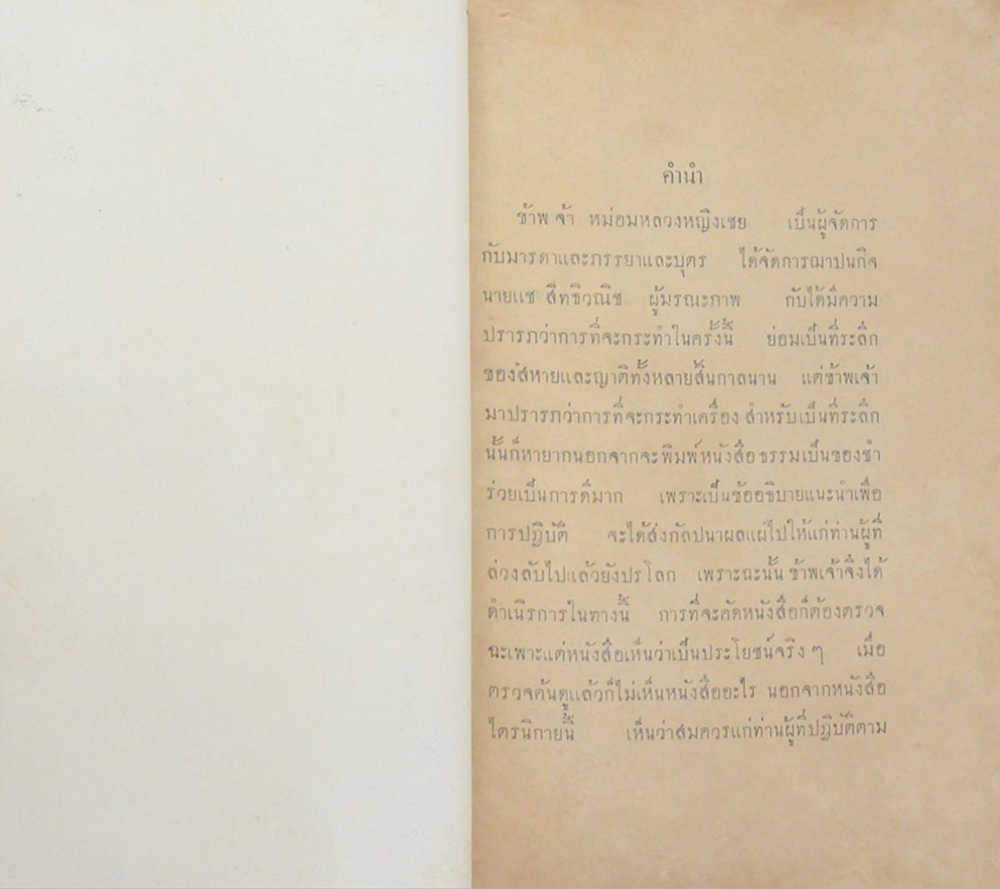 คำนำ
ข้าพเจ้า หม่อมหลวงหญิงเชย เป็นผู้จัดการ
กับมารดาและภรรยาและบุตร ได้จัดการฌาปนกิจ
นายแช สิทธิวณิช ผู้มรณะภาพ กับได้มีความ
ปรารภว่าการที่จะกระทำในครั้งนี้ ย่อมเป็นที่ระลึก
ของสหายและญาติทั้งหลายสิ้นกาลนาน แต่ข้าพเจ้า
มาปรารภว่าการที่จะกระทำเครื่อง สำหรับเป็นที่ระลึก
นั้นก็หายากนอกจากจะพิมพ์หนังสือธรรมเป็นของชำ
ร่วยเป็นการดีมาก เพราะเป็นข้ออธิบายแนะนำเพื่อ
การปฏิบัติ จะได้ส่งกัลปนาผลแผ่ไปให้แก่ท่านผู้ที่
ล่วงลับไปแล้วยังปรโลก เพราะฉะนั้น ข้าพเจ้าจึงได้
ดำเนิรการในทางนี้ การที่จะคัดหนังสือก็ต้องตรวจ
ฉะเพาะแต่หนังสือเห็นว่าเป็นประโยชน์จริง ๆ เมื่อ
ตรวจค้นดูแล้วก็ไม่เห็นหนังสืออะไร นอกจากหนังสือ
ไตรนิกายนี้ เห็นว่าสมควรแก่ท่านผู้ที่ปฏิบัติตาม